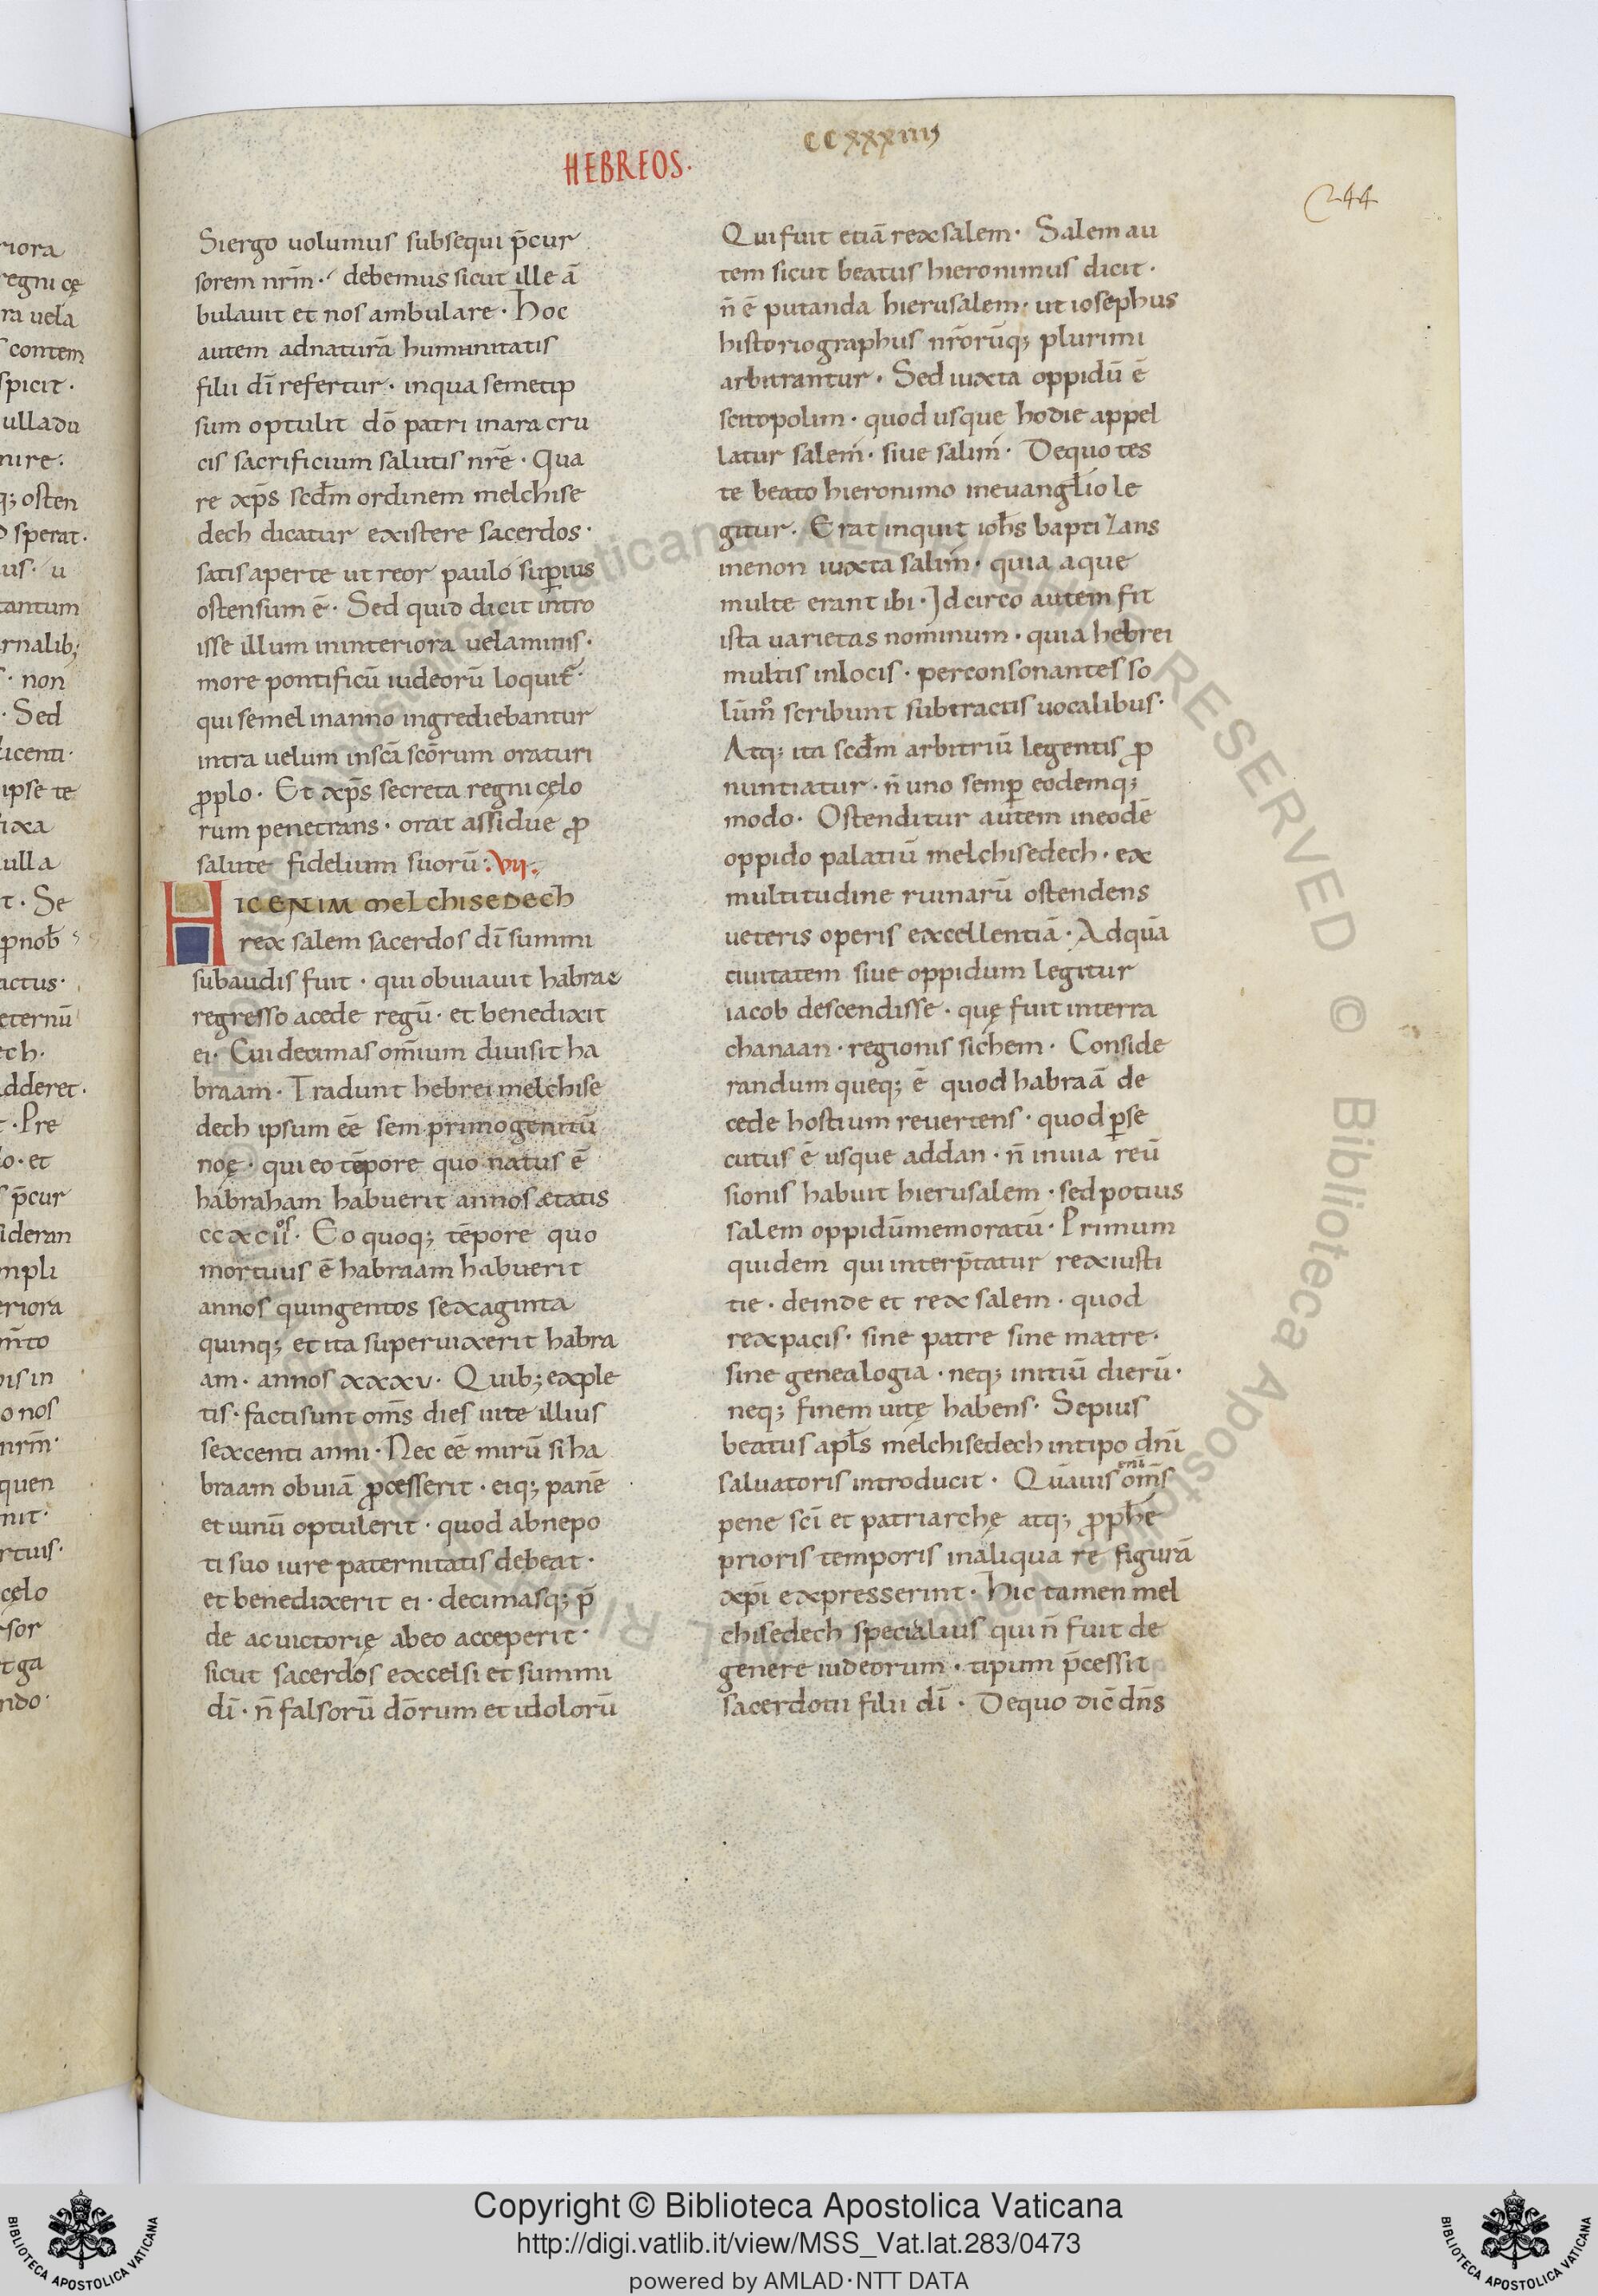 CCXXXIIII
HEBREOS·
244
riora
regni cę
ra uela
contem
spicit·
ulladu
nire·
q; osten
sperat·
us· u
tantum
rnalib;
· non
· Sed
licenti·
ipse te
fixa
ulla
t· Se
ꝓnob̄
actus·
eternū
ech·
dderet·
t· Pre
lo· et
p̄cur
sideran
mpli
eriora
m̄to
bis in
o nos
nrm̄·
quen
nit·
rtuis·
cęlo
sor
t ga
ndo·
Siergo uolumus subsequi p̄cur
sorem nrm̄· debemus sicut ille ā
bulauit et nos ambulare· Hoc
autem adnaturā humanitatis
filii dī refertur· inqua semetip
sum optulit dō patri inara cru
cis sacrificium salutis nrē· Qua
re xp̄s scd̄m ordinem melchise
dech dicatur existere sacerdos·
satis aperte ut reor paulo sup̄ius
ostensum ē· Sed quid dicit intro
isse illum ininteriora uelaminis·
more pontificū iudeorū loquit̄·
qui semel inanno ingrediebantur
intra uelum inscā scōrum oraturi
ꝓpplo· Et xp̄s secreta regni cęlo
rum penetrans· orat assidue ꝓ
salute fidelium suorū· VII·
HIC ENIM MELCHISEDECH
rex salem sacerdos dī summi
subaudis fuit· qui obuiauit habrae
regresso acede regū· et benedixit
ei· Cui decimas om̄ium diuisit ha
braam· Tradunt hebrei melchise
dech ipsum eē sem primogenitū
noę· qui eo tēpore quo natus ē
habraham habuerit annos ætatis
ccxcii os· Eo quoq; tēpore quo
mortuus ē habraam habuerit
annos quingentos sexaginta
quinq; et ita superuixerit habra
am· annos xxxv· Quib; exple
tis· facti sunt om̄s dies uite illius
sexcenti anni· Nec eē mirū si ha
braam obuiā ꝓcesserit· eiq; panē
et uinū optulerit· quod abnepo
ti suo iure paternitatis debeat·
et benedixerit ei· decimasq; p̄
de ac uictorię abeo acceperit·
sicut sacerdos excelsi et summi
dī· n̄ falsorū dōrum et idolorū
Qui fuit etiā rex salem· Salem au
tem sicut beatus hieronimus dicit·
n̄ ē putanda hierusalem· ut iosephus
historiographus nr̄orūq; plurimi
arbitrantur· Sed iuxta oppidū ē
scitopolim· quod usque hodie appel
latur salem· siue salim· Dequo tes
te beato hieronimo ineuangl̄io le
gitur· Erat inquit ioh̄s baptizans
inenon iuxta salim· quia aque
multe erant ibi· Idcirco autem fit
ista uarietas nominum· quia hebrei
multis inlocis· perconsonantes so
lūmo scribunt subtractis uocalibus·
Atq; ita scd̄m arbitriū legentis ꝓ
nuntiatur· n̄ uno semp̄ eodemq;
modo· Ostenditur autem ineodē
oppido palatiū melchisedech· ex
multitudine ruinarū ostendens
ueteris operis excellentiā· Adquā
ciuitatem siue oppidum legitur
iacob descendisse· quę fuit interra
chanaan· regionis sichem· Conside
randum queq; ē quod habraā de
cede hostium reuertens· quod p̄se
cutus ē usque addan· n̄ inuia reū
sionis habuit hierusalem· sed potius
salem oppidū memoratū· Primum
quidem qui interp̄tatur rex iusti
tie· deinde et rex salem· quod
rex pacis· sine patre sine matre·
sine genealogia· neq; initiū dierū·
neq; finem uitę habens· Sepius
beatus apl̄s melchisedech intipo dnī
saluatoris introducit· Quāuis om̄s
pene scī et patriarchę atq; ꝓph̄e
prioris temporis inaliqua re figurā
xp̄i expresserint· Hic tamen mel
chisedech specialius qui n̄ fuit de
genere iudeorum· tipum p̄cessit
sacerdotii filii dī· Dequo dic̄ dn̄s
Copyright © Biblioteca Apostolica Vaticana
http://digi.vatlib.it/view/MSS_Vat.lat.283/0473
powered by AMLAD·NTT DATA
BIBLIOTECA APOSTOLICA VATICANA
BIBLIOTECA APOSTOLICA VATICANA